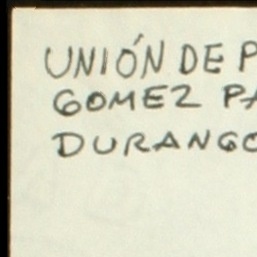 UNIÓN DE P
GOMEZ PA
DURANGO